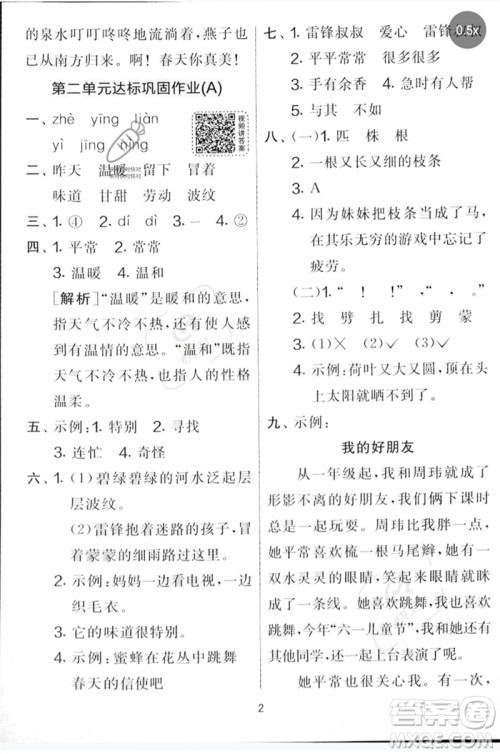 的泉水叮叮咚咚地流淌着，燕子也
从南方归来。啊！春天你真美！
第二单元达标巩固作业(A)
一、zhè yīng liàn
yì jīng nìng
视频讲答案
二、昨天 温暖 留下 冒着
味道 甘甜 劳动 波纹
三、1. ④ 2. dí dì 3. 一 4. ②
四、1. 平常 2. 常常
3. 温暖 4. 温和
[解析]“温暖”是暖和的意思，
指天气不冷不热，还可以使人感
到有温情的意思。“温和”既可指
天气不冷不热，也可指人的性格
温柔。
五、示例：1. 特别 2. 寻找
3. 连忙 4. 奇怪
六、1. (1) 碧绿碧绿的河水泛起层
层波纹。
(2) 雷锋抱着迷路的孩子，冒
着蒙蒙的细雨路过这里。
2. 示例：妈妈一边看电视，一边
织毛衣。
3. 它的味道很特别。
4. 示例：蜜蜂在花丛中跳舞
春天的信使吧
七、1. 雷锋叔叔 爱心 雷锋
0.5x
2. 平平常常
3. 手有余香 4. 急时有人帮
5. 与其 其
八、(一) 1. 匹 株 根
2. 一根又长又细的枝条
3. A
4. 因为妹妹把枝条当成了马，
在其乐无穷的游戏中忘记了
疲劳。
(二) 1. “ ！ ！” “ ，。”
2. 找 劈 扎 找 剪 蒙
3. (1)× (2)√ (3)√
4. 示例：荷叶又大又圆，顶在头
上太阳就晒不到了
九、示例：
我的好朋友
从一年级起，我和周玮就成了
形影不离的好朋友，俩们下课时
总是一起玩耍。周玮比我胖一些。
她平常喜欢梳一根马尾辫，有一
双水灵灵的眼睛，笑起来眼睛就
成了一条线。她喜欢跳舞，我也喜
欢跳舞，今年“六一儿童节”，我和她
一起上台表演了舞蹈。
她平常也很关心我。有一次，
2